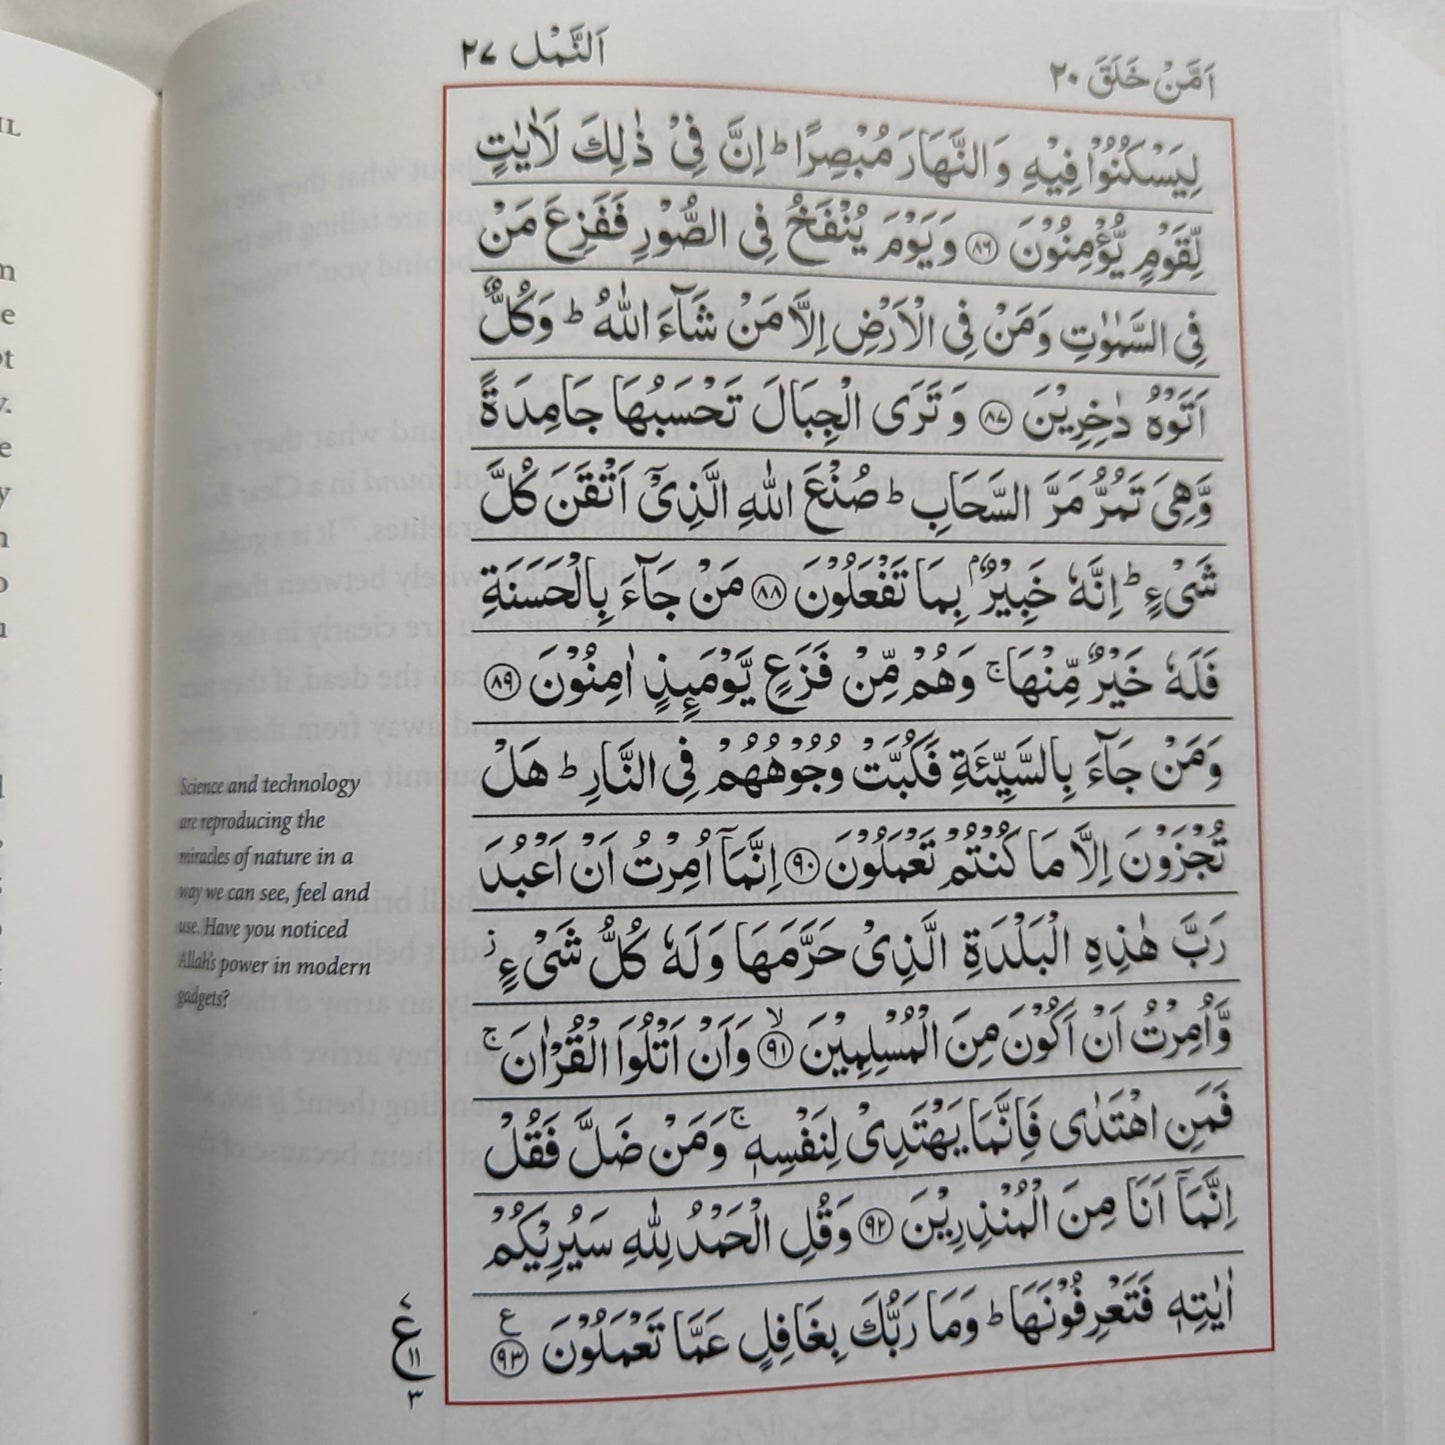 اَلنَّمْل ٢٧
اَمَّنْ خَلَقَ ٢٠
لِيَسْكُنُوْا فِيْهِ وَالنَّهَارَ مُبْصِرًا ؕ اِنَّ فِيْ ذٰلِكَ لَاٰيٰتٍ
لِّقَوْمٍ يُّؤْمِنُوْنَ ۝٨٦ وَيَوْمَ يُنْفَخُ فِى الصُّوْرِ فَفَزِعَ مَنْ
فِى السَّمٰوٰتِ وَمَنْ فِى الْاَرْضِ اِلَّا مَنْ شَآءَ اللّٰهُ ؕ وَكُلٌّ
اَتَوْهُ دٰخِرِيْنَ ۝٨٧ وَتَرَى الْجِبَالَ تَحْسَبُهَا جَامِدَةً
وَّهِىَ تَمُرُّ مَرَّ السَّحَابِ ؕ صُنْعَ اللّٰهِ الَّذِىْۤ اَتْقَنَ كُلَّ
شَىْءٍ ؕ اِنَّهٗ خَبِيْرٌۢ بِمَا تَفْعَلُوْنَ ۝٨٨ مَنْ جَآءَ بِالْحَسَنَةِ
فَلَهٗ خَيْرٌ مِّنْهَا ۚ وَهُمْ مِّنْ فَزَعٍ يَّوْمَىِٕذٍ اٰمِنُوْنَ ۝٨٩
وَمَنْ جَآءَ بِالسَّيِّئَةِ فَكُبَّتْ وُجُوْهُهُمْ فِى النَّارِ ؕ هَلْ
تُجْزَوْنَ اِلَّا مَا كُنْتُمْ تَعْمَلُوْنَ ۝٩٠ اِنَّمَاۤ اُمِرْتُ اَنْ اَعْبُدَ
رَبَّ هٰذِهِ الْبَلْدَةِ الَّذِىْ حَرَّمَهَا وَلَهٗ كُلُّ شَىْءٍ ؗ
وَّاُمِرْتُ اَنْ اَكُوْنَ مِنَ الْمُسْلِمِيْنَ ۙ۝٩١ وَاَنْ اَتْلُوَا الْقُرْاٰنَ ۚ
فَمَنِ اهْتَدٰى فَاِنَّمَا يَهْتَدِىْ لِنَفْسِهٖ ۚ وَمَنْ ضَلَّ فَقُلْ
اِنَّمَاۤ اَنَا مِنَ الْمُنْذِرِيْنَ ۝٩٢ وَقُلِ الْحَمْدُ لِلّٰهِ سَيُرِيْكُمْ
اٰيٰتِهٖ فَتَعْرِفُوْنَهَا ؕ وَمَا رَبُّكَ بِغَافِلٍ عَمَّا تَعْمَلُوْنَ ۝٩٣ ع
Science and technology
are reproducing the
miracles of nature in a
way we can see, feel and
use. Have you noticed
Allah's power in modern
gadgets?
ع
١١
٣